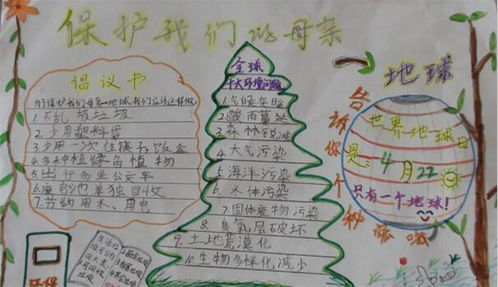 保护我们的母亲
倡议书
为了保护我们共有一地球,我们应该这样做
1.不乱扔垃圾
2.少用塑料袋
3.少用一次性筷子饭盒
4.多种植绿色植物
5.出行多坐公交车
6.废电池单独回收
7.节约用水、用电
环保
全球
十大环境问题
1.气候变暖
2.酸雨蔓延
3.森林锐减
4.大气污染
5.海洋污染
6.水体污染
7.固体废物污染
8.臭氧层破坏
9.土地荒漠化
10.生物多样化减少
地球
告诉你个
世界地球日
是:4月22
只有一个地球!